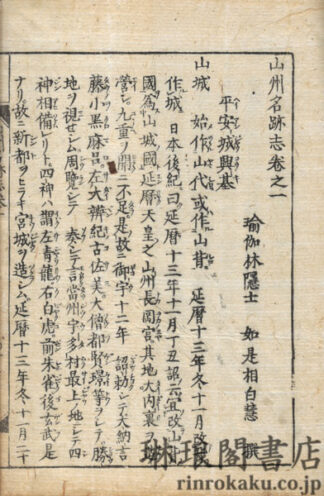 山州名跡志卷之一
瑜伽林隱士 如是相白慧 撰
平安城興基
山城 始作山代或作山背 延暦十三年冬十一月改
作城 日本後紀曰延暦十三年十一月丁丑詔云宜改山背
國為山城國延暦天皇之山州長岡宮其地大内裏ヲ
營シ九重ヲ開ニ不足是故ニ御宇十二年 詔勅シテ大納言
藤小黒麻呂左大辨紀古佐美大僧都賢璟等ヲシテ勝
地ヲ視セシム周覽シテ 奏シテ言當州宇多村最上ノ地シテ四
神相備レリト四神ハ謂左青龍右白虎前朱雀後玄武是
ナリ故ニ新都ヲヒラキ宮城ヲ造シム延暦十三年冬十一月二十
琳琅閣書店
rinrokaku.co.jp